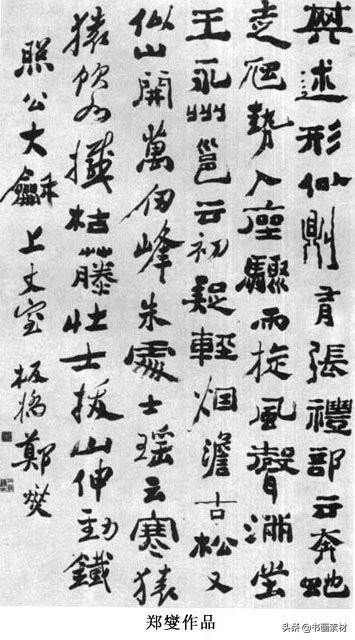 其述形似則有張禮部云奔蛇
走虺勢入座驟雨旋風聲滿堂
王永州邕云初疑輕烟澹古松又
似山開萬仞峰朱處士瑶云寒猿
猿飲水撼枯藤壯士拔山伸勁鐵
公大龢上丈室 板橋鄭燮
郑燮作品
头条@书画素材